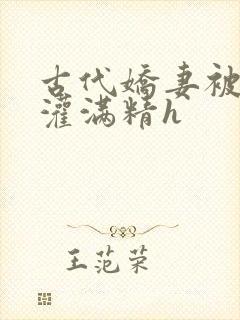 古代嬌妻被
灌满精h
王范荣